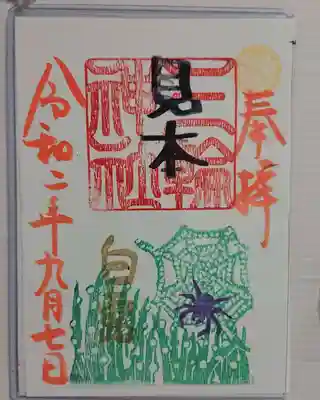 奉拝
三輪神社
見本
白露
令和二年九月七日